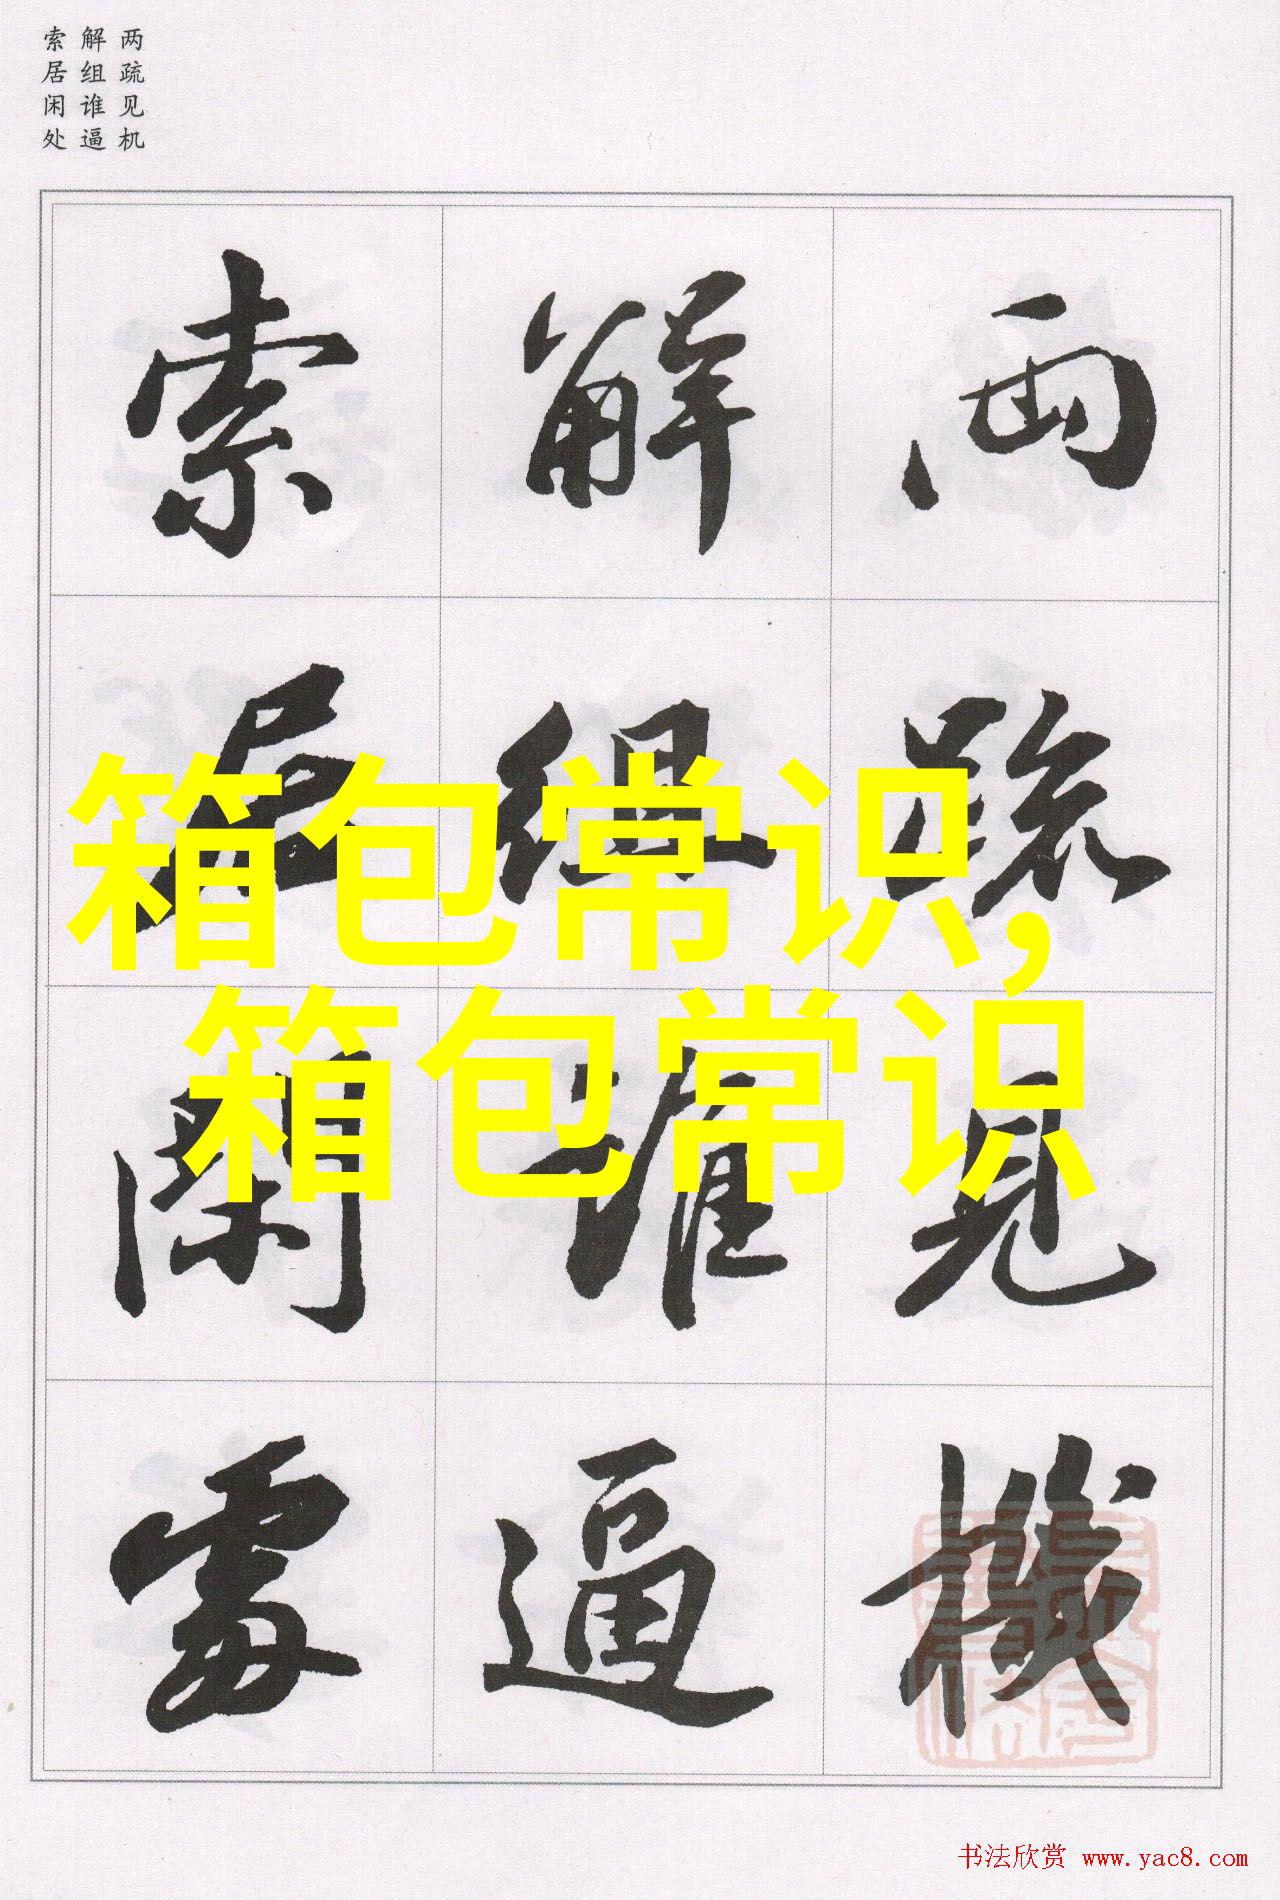 两疏见机
解组谁逼
索居闲处
两疏見機
解組誰逼
索居閑處
箱包常识,
箱包常识
书法欣赏 www.yac8.com